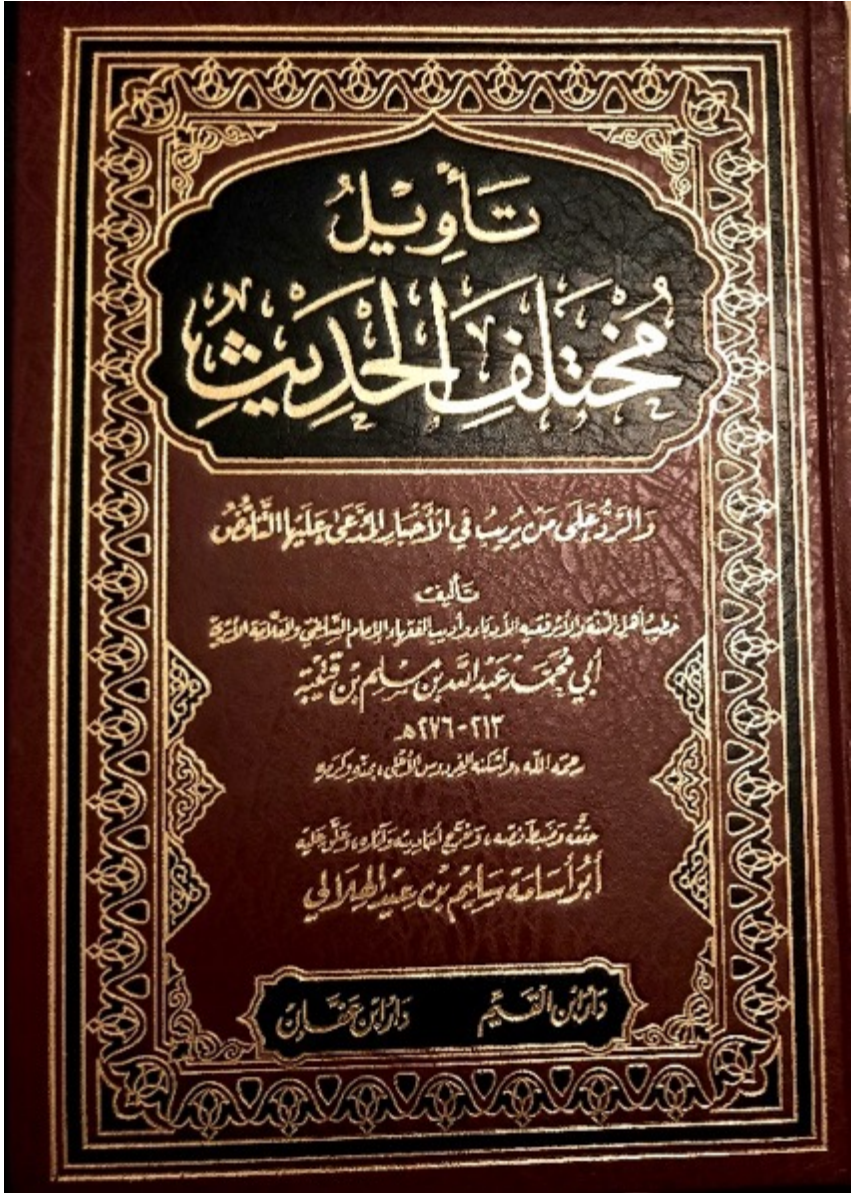 تَأْوِيْلُ
مُخْتَلِفِ الْحَدِيْثِ
وَالرَّدُّ عَلَى مَنْ يُرِيبُ فِي الأَخْبَارِ المُدَّعَى عَلَيْهَا التَّنَاقُضُ
تأليف
خطيب أهل السنة والأثر فقيه الأدباء وأديب الفقهاء الإمام السلفي والعلامة الأثري
أبي محمّد عبد الله بن مسلم بن قتيبة
٢١٣-٢٧٦هـ
رحمه الله، وأسكنه الفردوس الأعلى، بمنه وكرمه
حققه وضبط نصه، وخرج أحاديثه وآثاره، وعلق عليه
أبو أسامة سليم بن عيد الهلالي
دار ابن القيم دار ابن عفان